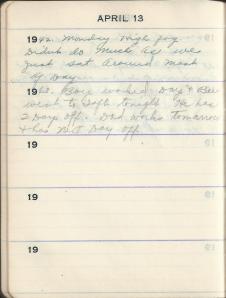 APRIL 13
1942. Monday High fog
Didn't do much as we
just sat around most
of Day.
19 Boys worked Days & Bee
went to Golf tonight He has
2 Days off. Dad works tomorrow
& has next Day off
19
19
19